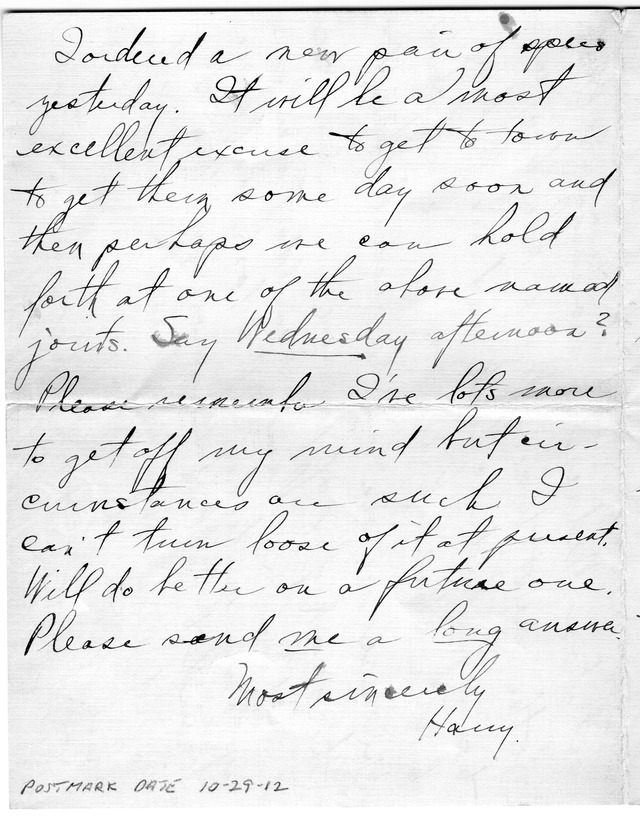 I ordered a new pair of specs
yesterday. It will be a most
excellent excuse to get to town
to get them some day soon and
then perhaps we can hold
forth at one of the above named
joints. Say Wednesday afternoon?
Please remember I've lots more
to get off my mind but cir-
cumstances are such I
can't turn loose of it at present.
Will do better on a future one.
Please send me a long answer.
Most sincerely
Harry.
POSTMARK DATE 10-29-12